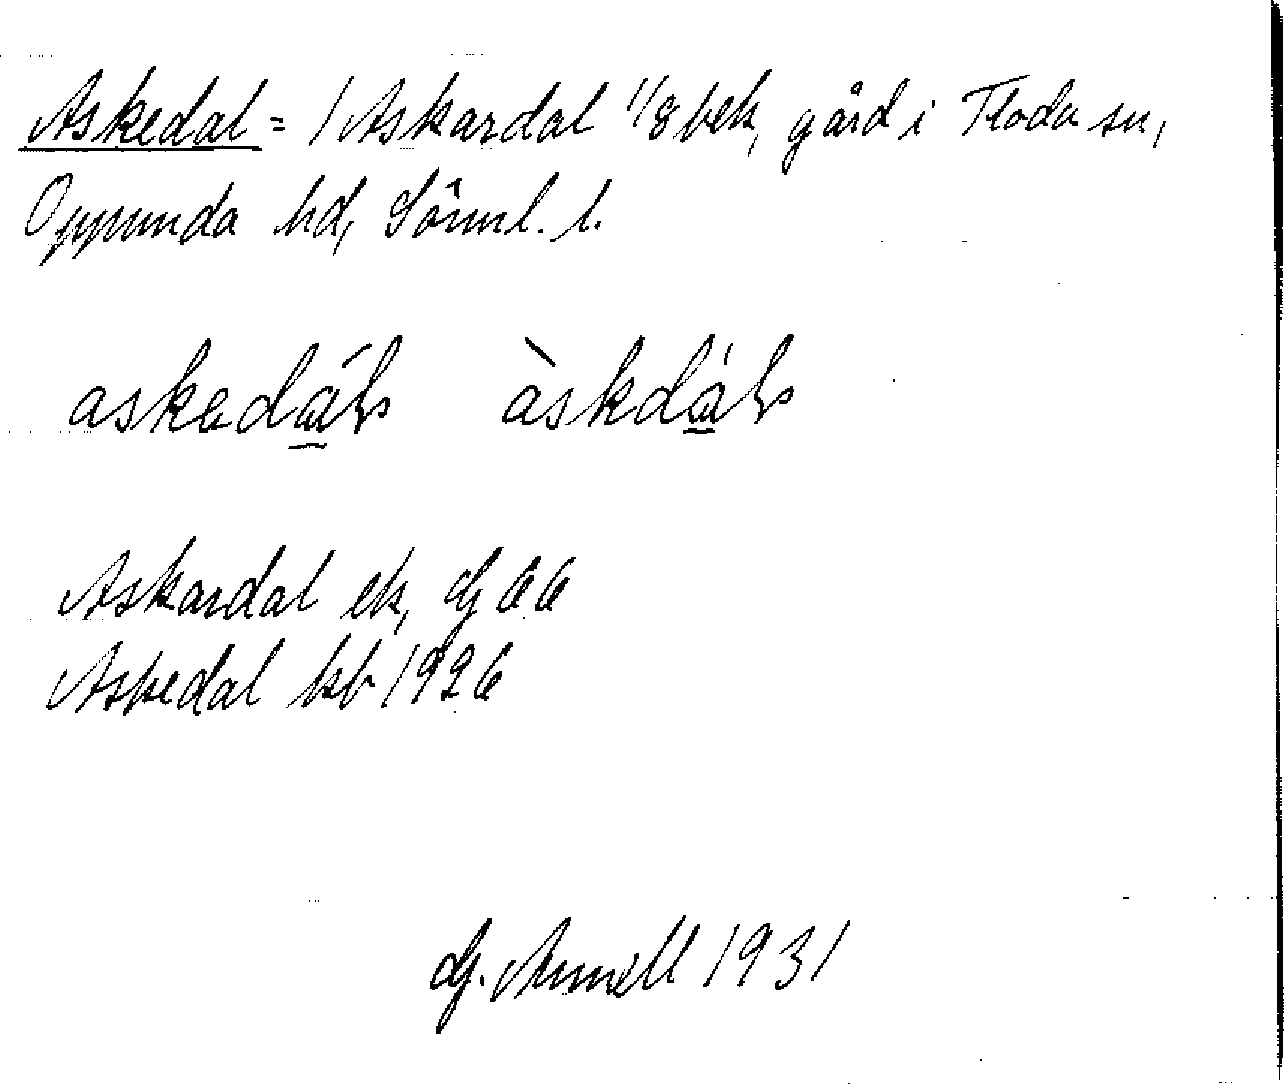 Askedal = / Askardal 1/8 bek, gård i Floda sn,
Oppunda hd, Sörml. l.
askedál àskdál
Askardal ek, Gj 66
Askedal kb 1926
G. Annell 1931